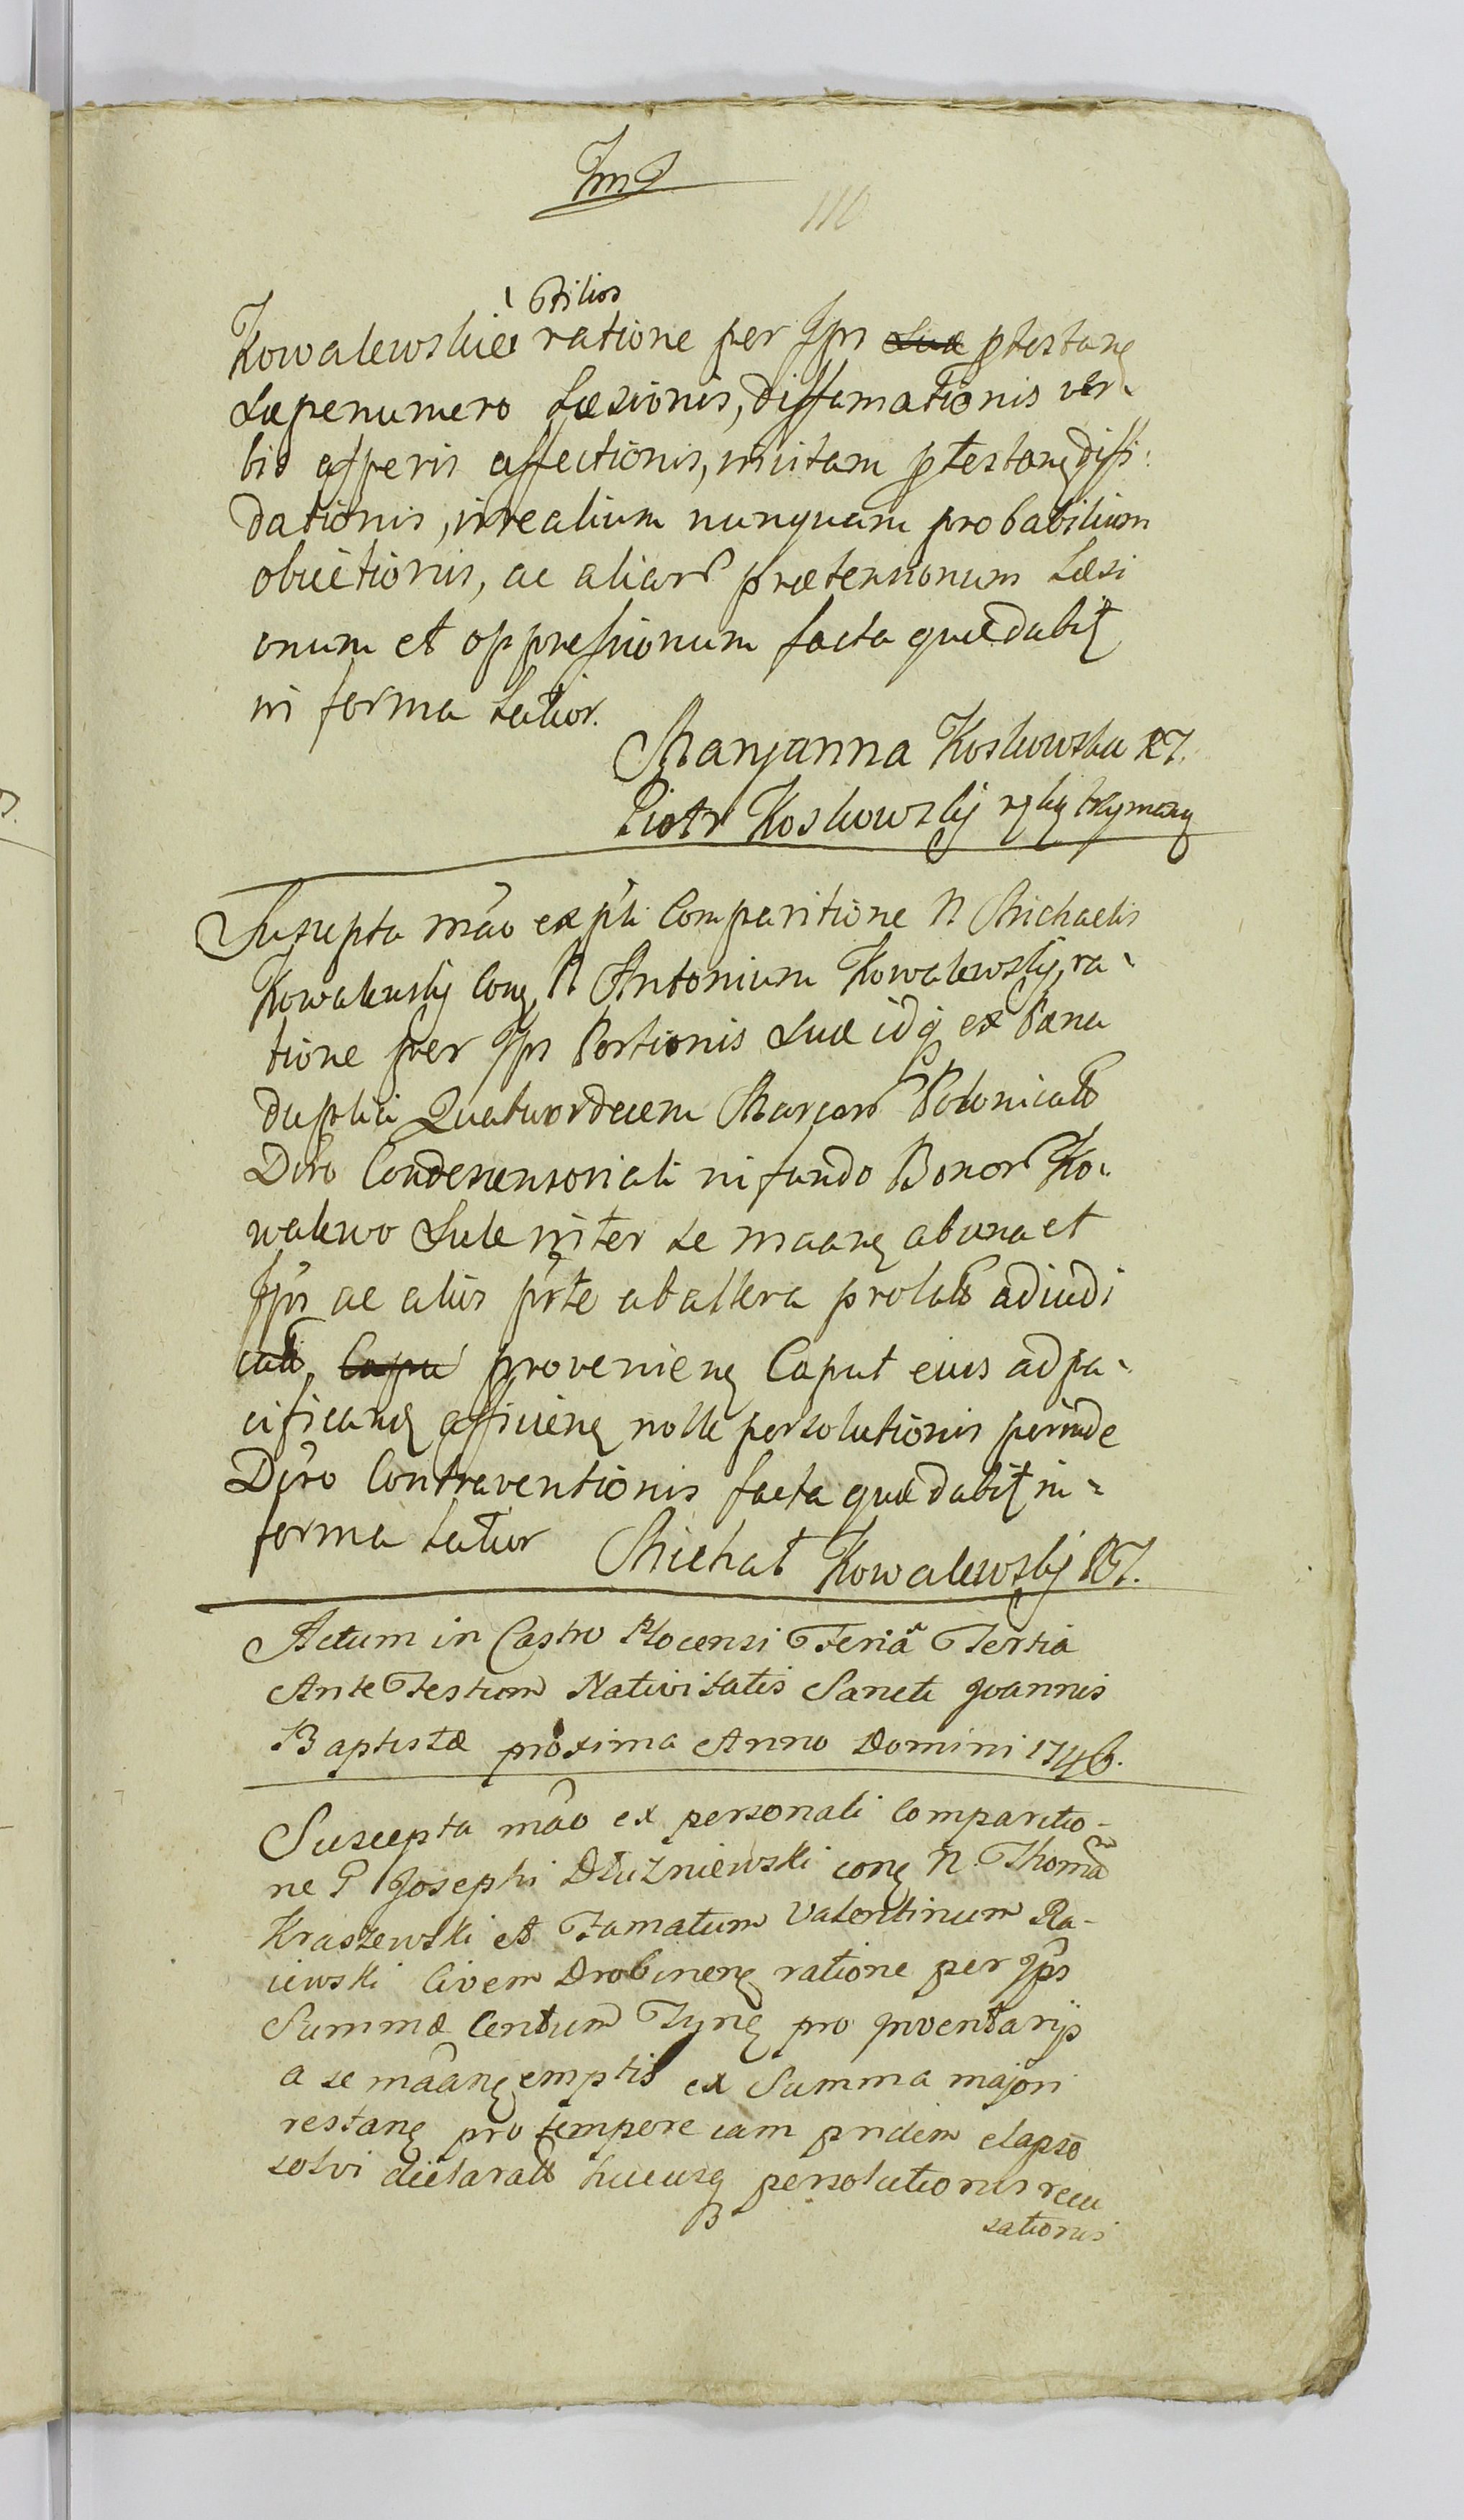 110
Filios
Kowalewskie ratione per Ips Suæ ptestanę
Sæpenumero Læsionis, diffamationis ver-
bis asperis affectionis, in vitam ptestanę diffi:
dationis, irrealium nunquam probabilium
obiectionis, ac aliar prætensionum Læsi
onum et oppressionum facta quæ dabit
in forma Latior.
Maryanna Koskowska RT.
Piotr Koskowsky ręką trzymaną
Suscepta mão ex pli Comparitione N Michaelis
Kowalewsky Conę N Antonium Kowalewsky, ra-
tione per Ips Portionis Suæ idq ex Pæna
duplici Quatuordecem Marcar Polonical
Dtro Condescensoriali in fundo Bonor Ko-
walewo Sule inter se maanę ab una et
Ips ac aliis prte ab altera prolato adiudi
cato, Caput provenienę Caput eius ad pa-
cificanę afficienę nolle persolutionis perinde
Dtro Contraventionis facta quæ dabit in=
forma Latior Michał Kowalewsky RT.
Actum in Castro Plocensi Feria Tertia
Ante Festum Nativitatis Sancti Joannis
Baptistæ proxima Anno Domini 1746.
Suscepta mão ex personali Comparitio-
ne P Josephi Dłużniewski conę N. Thomã
Kraszewski et Famatum Valentinum Ra-
iewski Civem Drobinenę ratione per Ips
Summæ Centum Tynę pro Inventarys
a se mãanę emptis ex Summa majori
restanę pro tempore iam pridem elapso
solvi declarato hucusq persolutionis recu
sationis